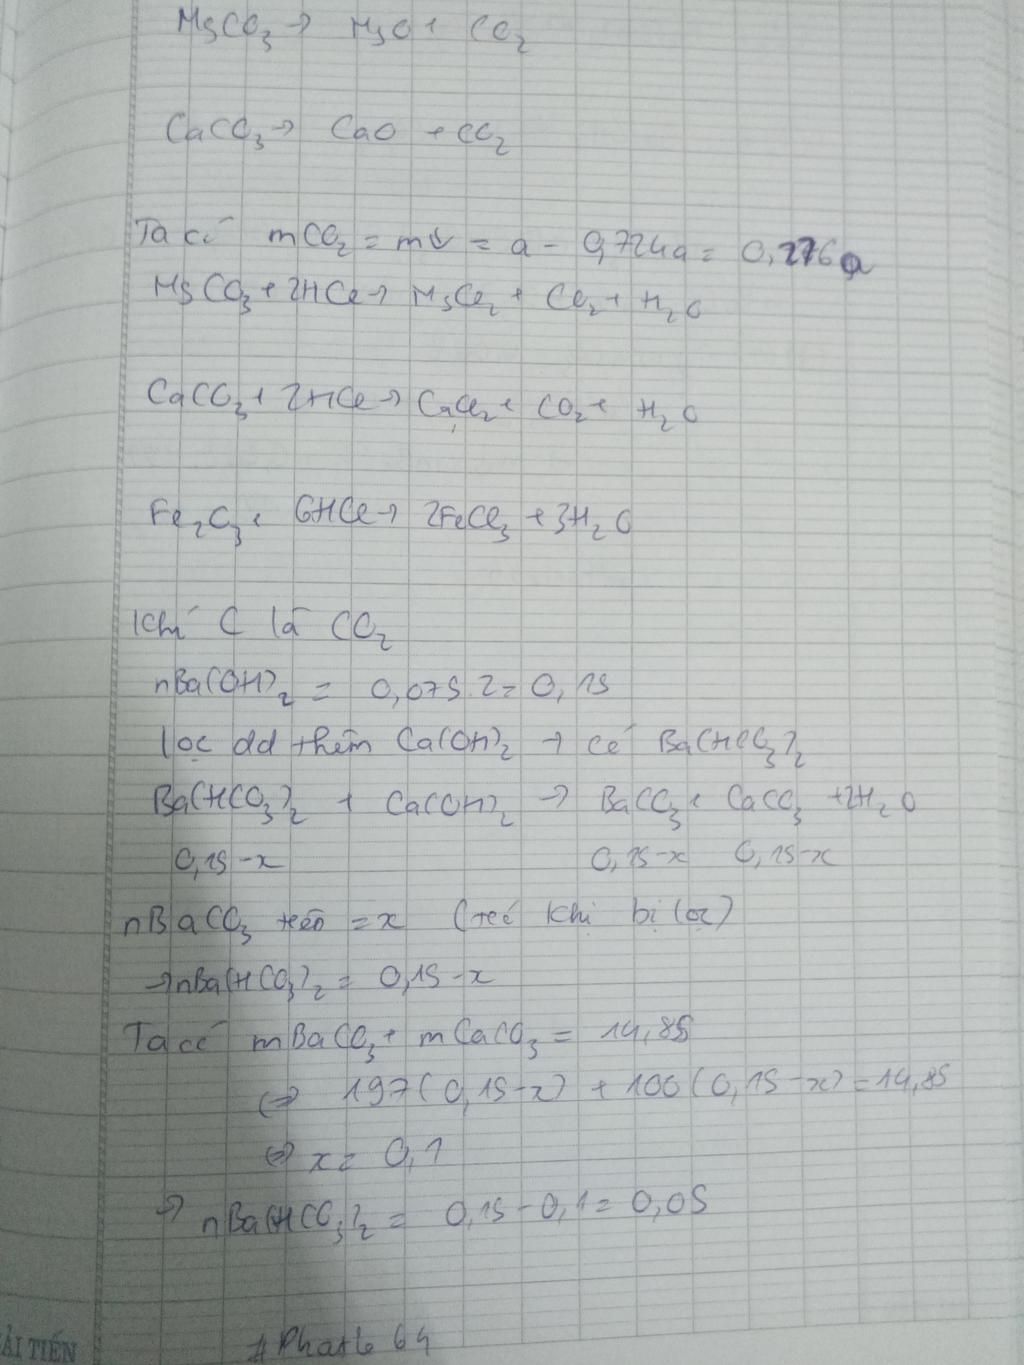 MgCO3 → MgO + CO2
CaCO3 → CaO + CO2
Ta có mCO2 = m↓ = a - 0,724a = 0,276a
MgCO3 + 2HCl → MgCl2 + CO2 + H2O
CaCO3 + 2HCl → CaCl2 + CO2 + H2O
Fe2O3 + 6HCl → 2FeCl3 + 3H2O
Khí C là CO2
nBa(OH)2 = 0,075.2 = 0,15
lọc dd thêm Ca(OH)2 → có Ba(HCO3)2
Ba(HCO3)2 + Ca(OH)2 → BaCO3 + CaCO3 + 2H2O
0,15-x 0,15-x 0,15-x
nBaCO3 = x (khi bị lọc)
→ nBa(HCO3)2 = 0,15-x
Ta có mBaCO3 + mCaCO3 = 14,85
⇔ 197(0,15-x) + 100(0,15-x) = 14,85
⇔ x = 0,1
→ nBa(HCO3)2 = 0,15 - 0,1 = 0,05
ẢI TIẾN
#Phatle 64